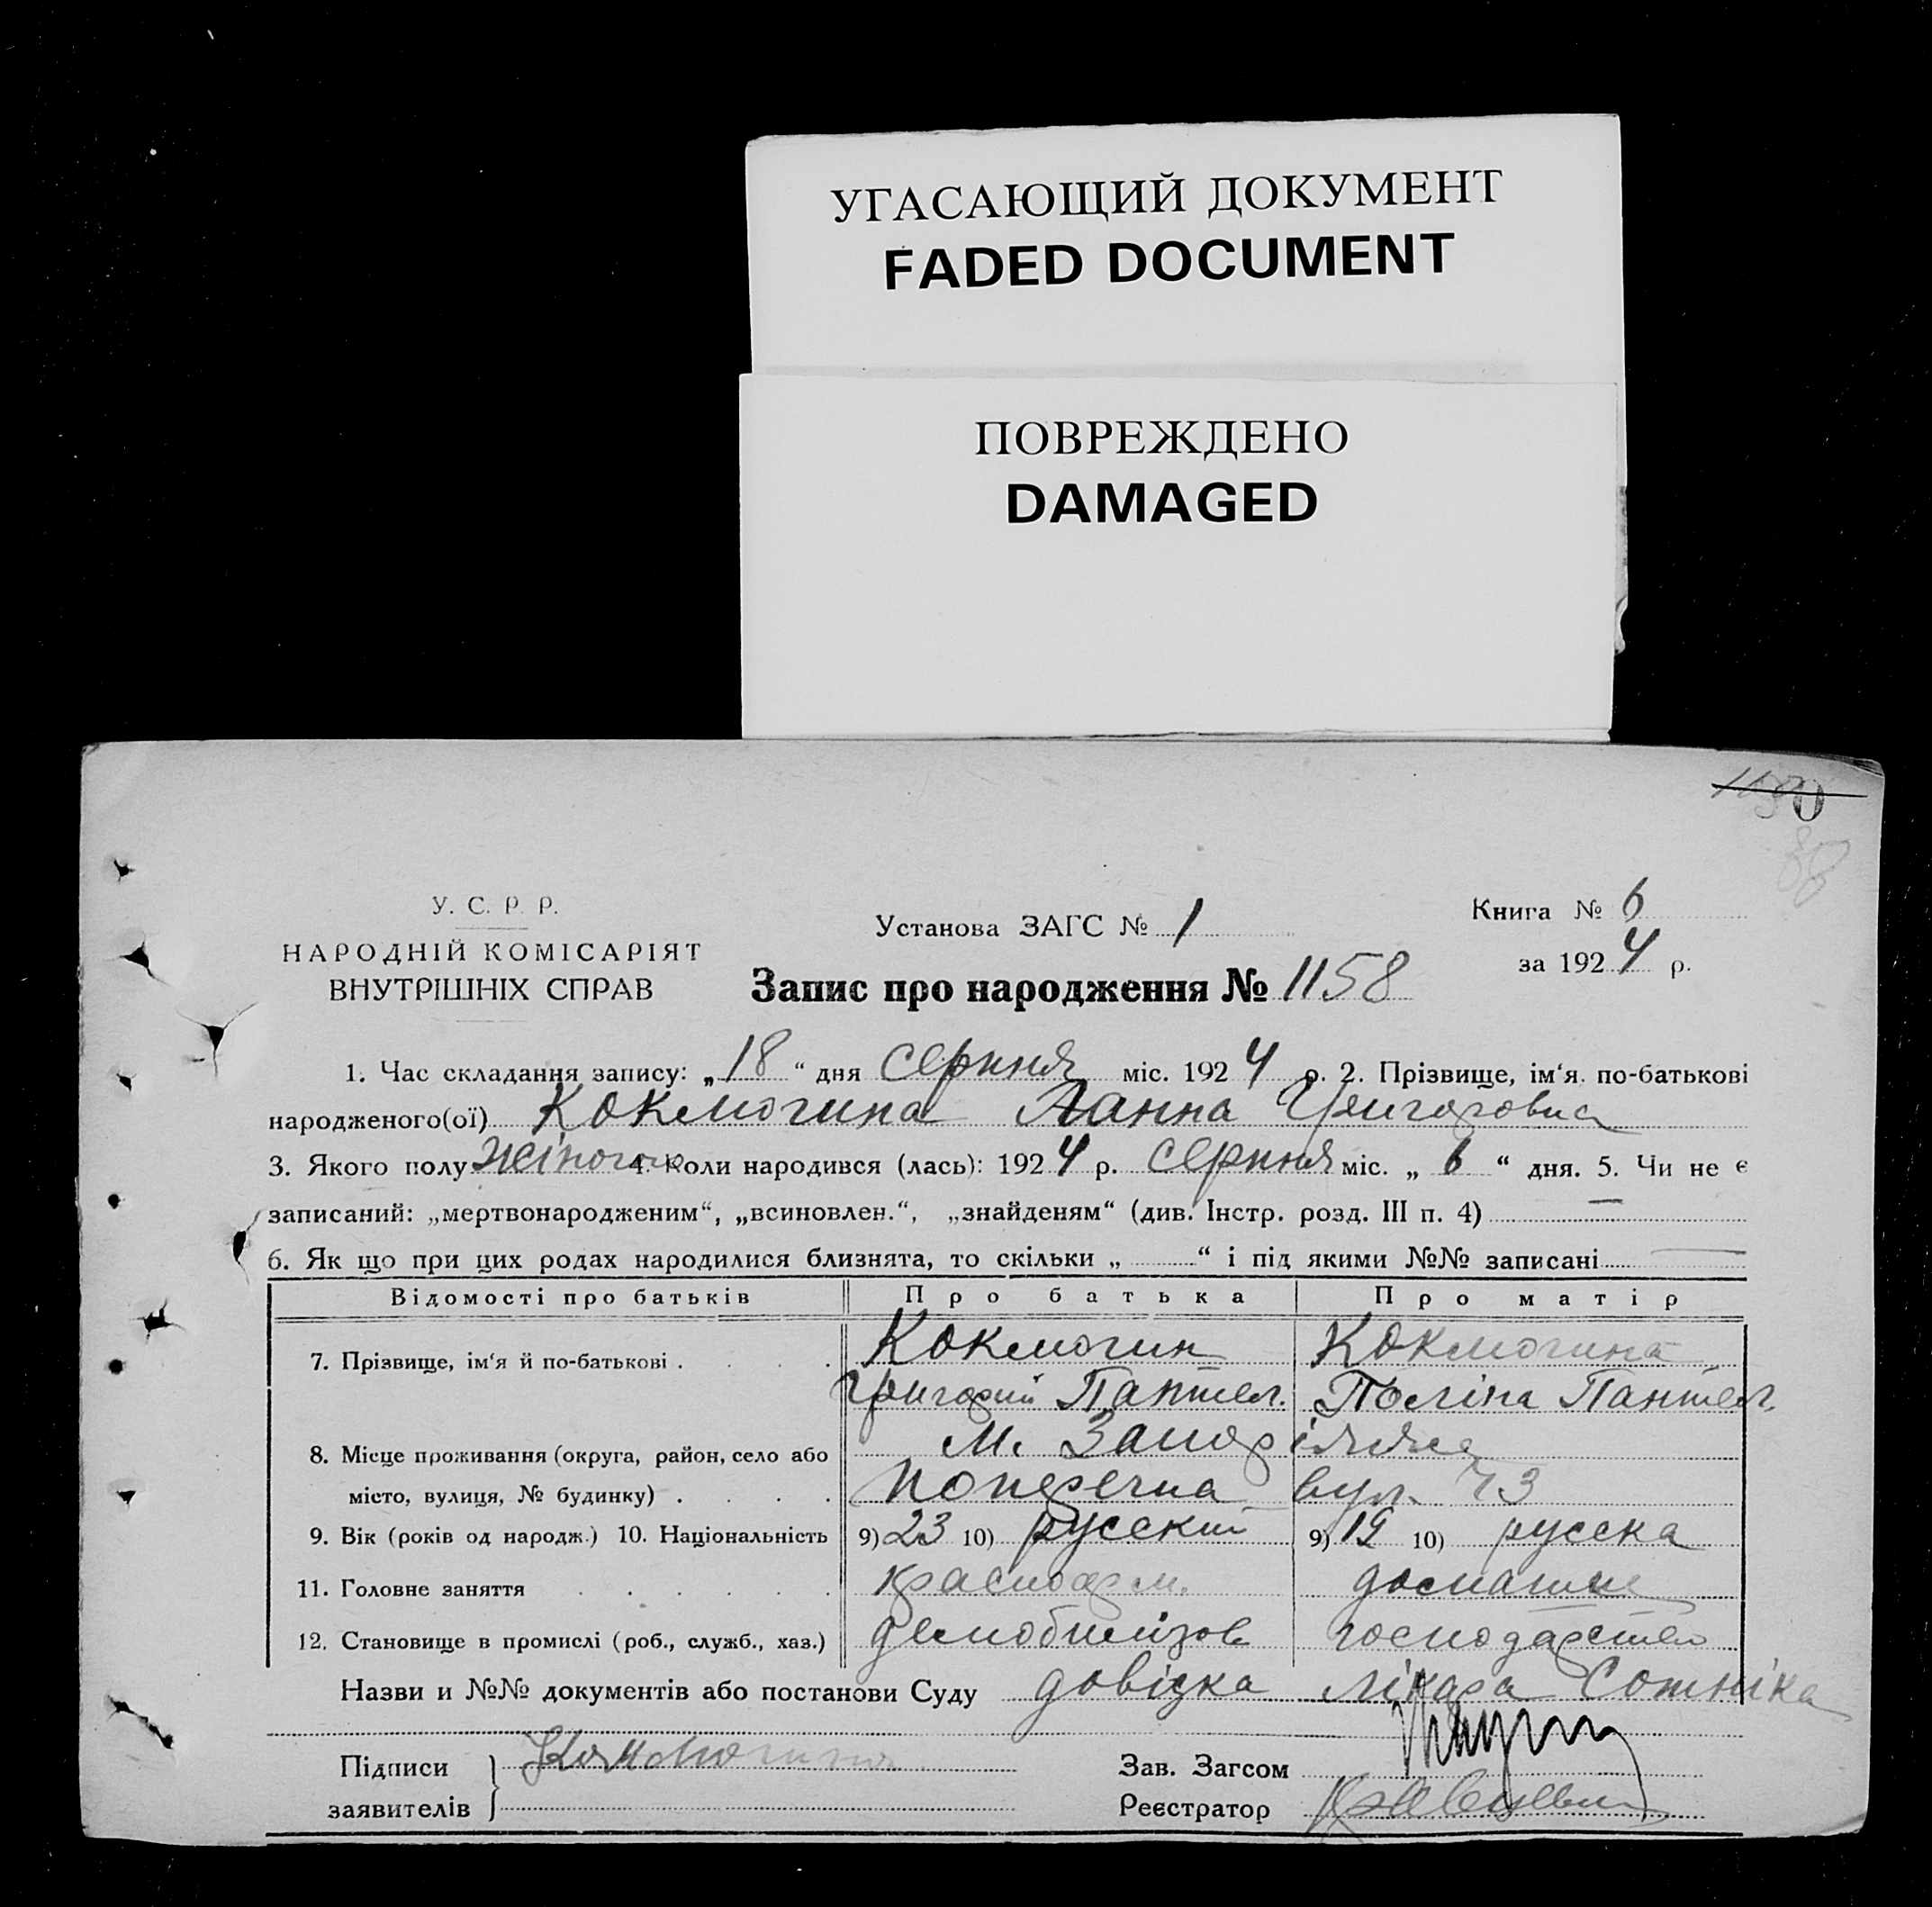 УГАСАЮЩИЙ ДОКУМЕНТ
FADED DOCUMENT
ПОВРЕЖДЕНО
DAMAGED
У. С. Р. Р.
НАРОДНІЙ КОМІСАРІЯТ
ВНУТРІШНІХ СПРАВ
Установа ЗАГС № 1
Книга № 6
за 1924 р.
Запис про народження № 1158
1. Час складання запису: „18“ дня серпня міс. 1924 р. 2. Прізвище, ім‘я. по-батькові
народженого(ої) Кокмогина Ганна Григоровна
3. Якого полу жіночого 4. Коли народився (лась): 1924 р. серпня міс. „6“ дня. 5. Чи не є
записаний: „мертвонародженим“, „всиновлен.“, „знайденям“ (див. Інстр. розд. III п. 4) —
6. Як що при цих родах народилися близнята, то скільки „ “ і під якими №№ записані —
Відомості про батьків Про батька Про матір
7. Прізвище, ім‘я й по-батькові Кокмогин Кокмогина
Григорий Пантел. Поліна Пантел.
8. Місце проживання (округа, район, село або м. Запоріжжя
місто, вулиця, № будинку) Поперечна вул. 43
9. Вік (років од народж.) 10. Національність 9) 23 10) русский 9) 19 10) русска
11. Головне заняття красноарм. домашне
12. Становище в промислі (роб., служб., хаз.) демобилізов господарство
Назви и №№ документів або постанови Суду довідка лікара Сотніка
Підписи
заявителів
Зав. Загсом
Реєстратор